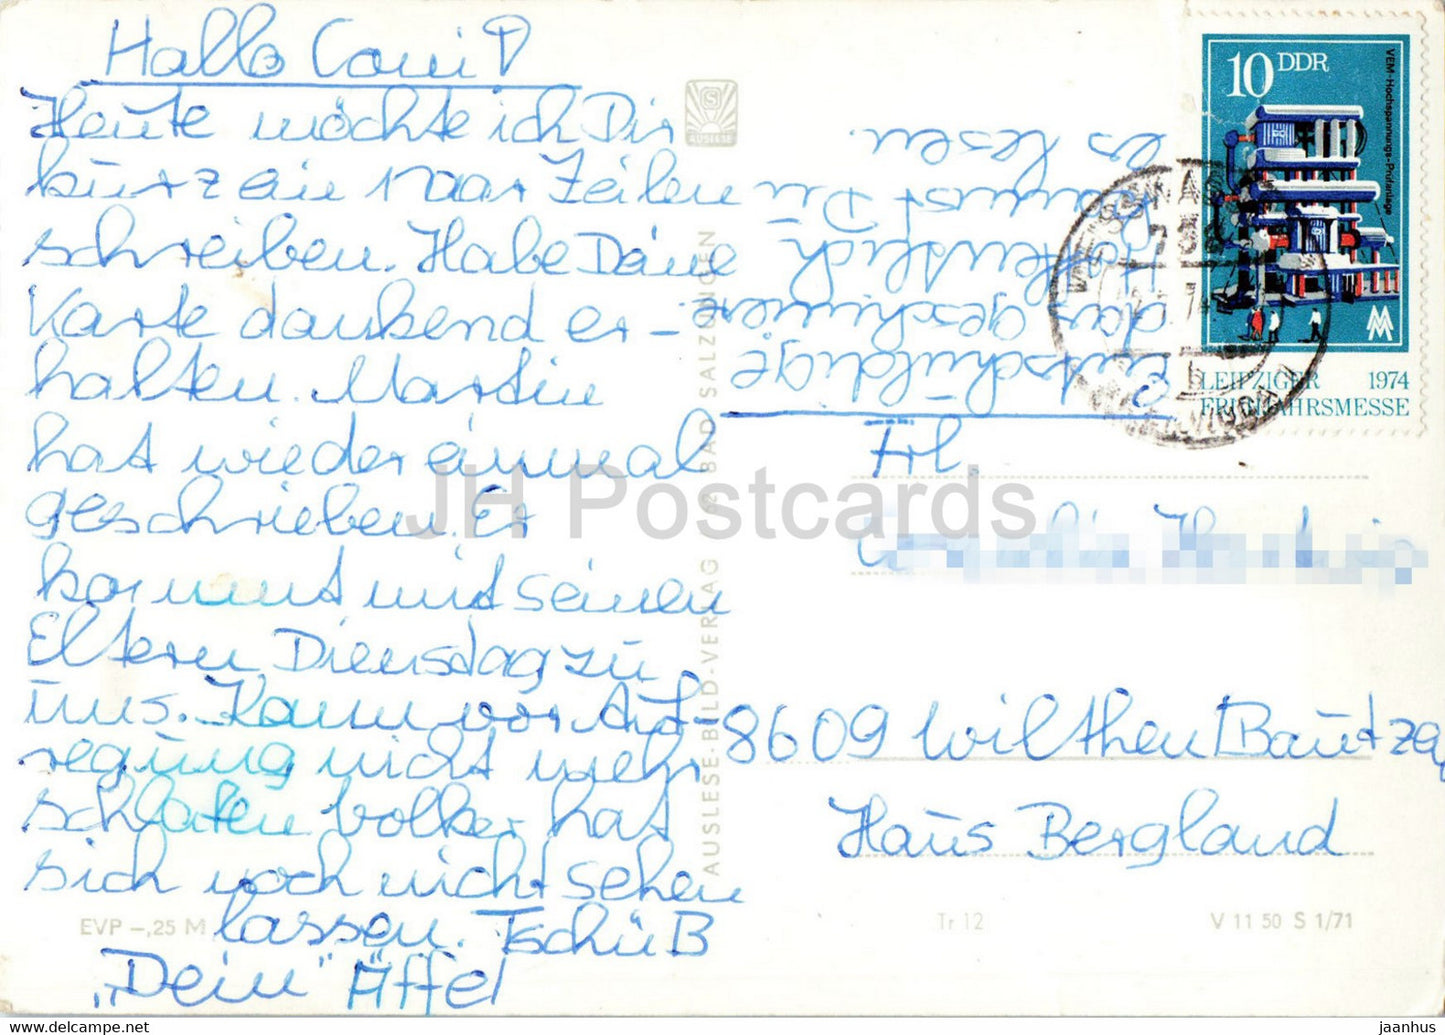 Hallo Coni!
Heute möchte ich Dir
kurz ein paar Zeilen
schreiben. Habe Deine
Karte dankend er-
halten. Martin
hat wieder einmal
geschrieben. Er
kommt mit seinen
Eltern Dienstag zu
uns. Kann vor Auf-
regung nicht mehr
schlafen Volker hat
sich noch nicht sehen
lassen. Tschü B
"Dein" Äffel
Entschuldige
das geschmiere.
Hoffentlich
kannst Du
es lesen.
AUSLESE
AUSLESE-BILD-VERLAG / 62 BAD SALZUNGEN
10 DDR
VEM-Hochspannungs-Prüfanlage
MM
LEIPZIGER 1974
FRÜHJAHRSMESSE
Frl.
8609 Wilthen/Bautzen
Haus Bergland
EVP -,25 M
Tr 12
V 11 50 S 1/71
JH Postcards
www.delcampe.net
jaanhus